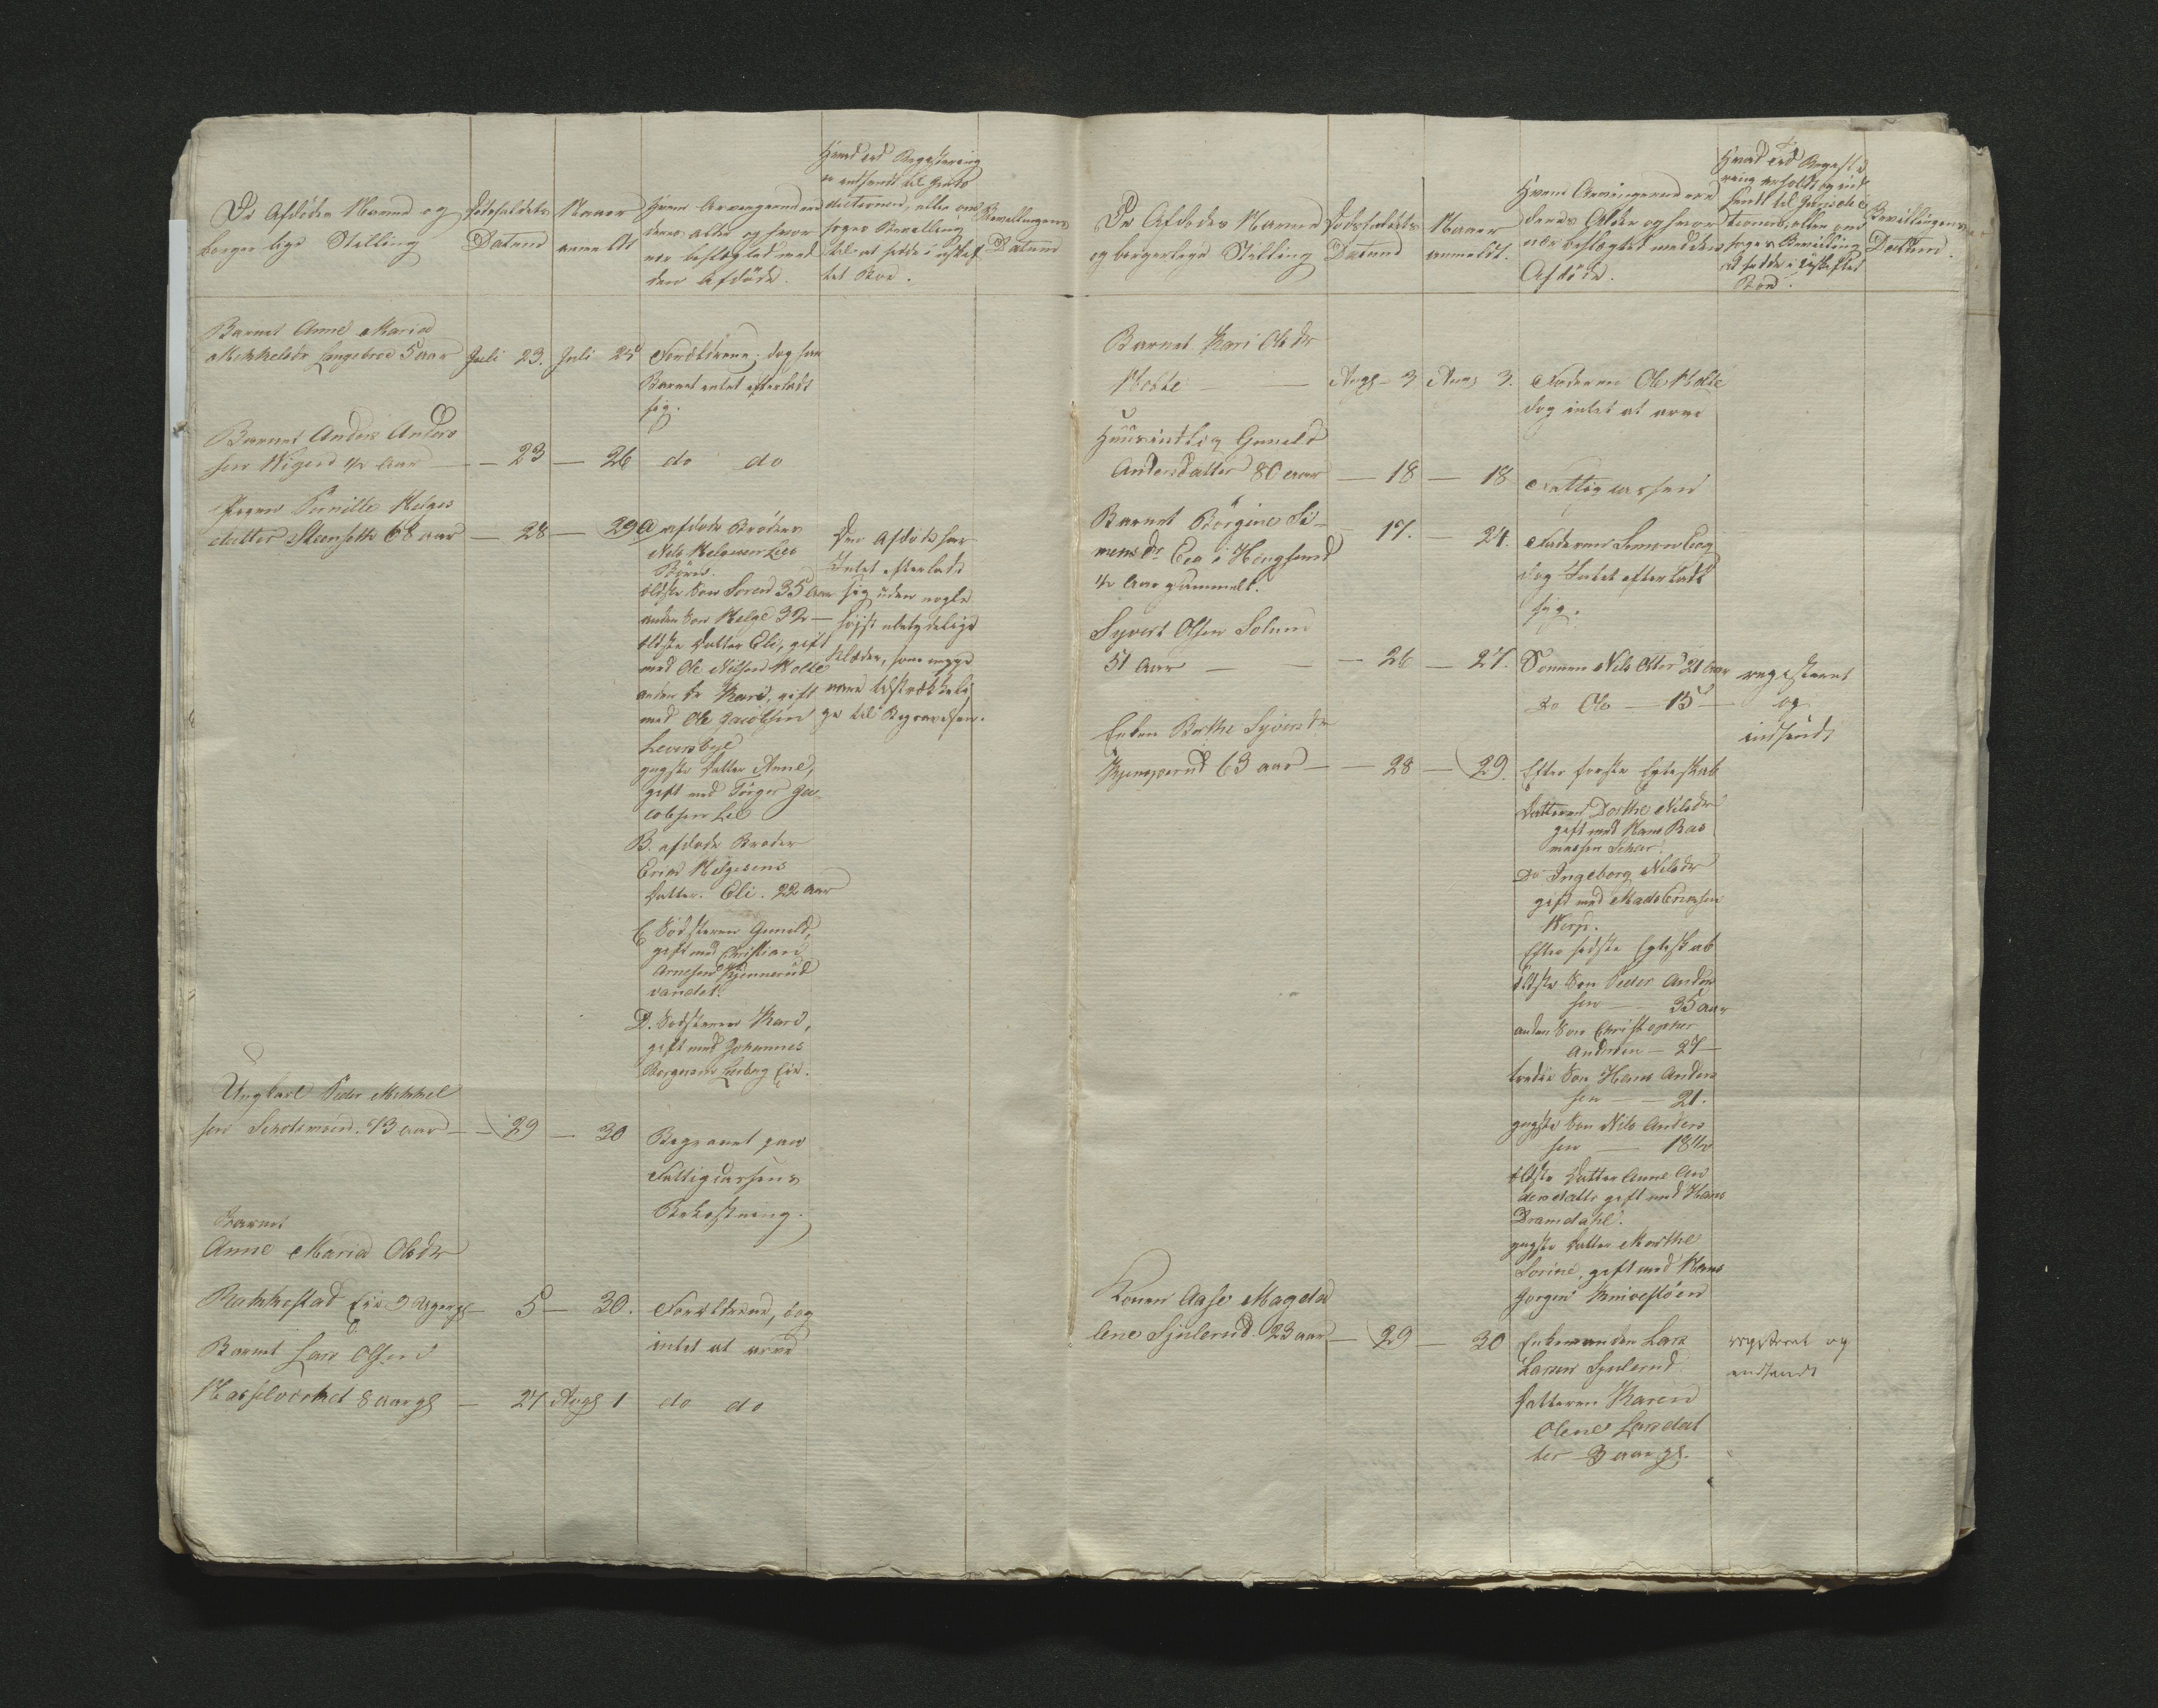 De Afdödes Navne og
borgerlige Stilling
Dödsfaldets
Datum
Naar
anmeldt
Hvem Arvingerne ere
deres Alder og hvor
nær beslægtet med
den Afdöde.
Hvad ved Registrering
er indsendt til Juris
dictionen, eller om
söges Bevilling
til at sidde i uskif
tet Boe.
Bevillingens
Datum
Barnet Anne Maria
Mikkelsdr Langebroe 5 aar
Juli 23.
Juli 25
Forældrene, dog har
Barnet intet efterladt
sig.
Barnet Anders Anders
sen Wigen 1/2 Aar
— 23
— 26
do do
Pernille Helges
datter Steenseth 68 aar
— 28
— 29
A afdöde Broder
Nils Helgesen Lies
Börn.
ældste Sön Soren 35 Aar
anden Son Helge 32 —
ældste Datter Eli, gift
med Ole Nilsen Holte
anden do Kari, gift
med Ole Jacobsen
Leversbye
yngste Datter Anne,
gift med Törger Ja-
cobsen Lie
B. afdöde Broder
Erik Helgesens
Datter. Eli. 22 aar
C Södsteren Gunild,
gift med Christian
Arnesen Kjennerud
vandet.
D. Södsteren Kari,
gift med Johannes
Borgersen Loeberg Eie.
Den Afdöde har
Intet efterladt
sig uden nogle
höjst ubetydelige
Klæder, som
være tilstrækkeli
ge til Begravelsen.
Ungkarl Peder Mikkel
sen Schotsmoen. 73 aar
— 29
— 30
Begravet paa
Fattigcassens
Bekostning.
Barnet
Anne Maria Olsdr
Rakkestad Eie 9 Uger gl
— 5
— 30.
Forældrene, dog
intet at arve
Barnet Lars Olsen
Hasselvoldet 8 aar gl
— 27
Aug 1
do do
De Afdödes Navne
og borgerlige Stilling
Dödsfaldets
Datum
Naar
anmeldt.
Hvem Arvingerne ere
deres Alder og hvor
nær beslægtet med den
Afdöde.
Hvad ved Regist
rering erholdt og ind
sendt til Jurisdic
tionen, eller om
söges Bevilling
at sidde i uskiftet
Boe.
Bevillingens
Datum.
Barnet Kari Olsdr
Holte
Aug — 3
Aug 3.
Faderen Ole Holte
dog intet at arve
Huusinderst Gunild
Andersdatter 80 aar
— 18
— 18
Fattigcassen
Barnet Börgine Si-
mensdr Eeg i Hougsund
1/2 Aar gammelt.
17.
— 24.
Faderen Simen Eeg
dog Intet efterladt
sig.
Syvert Olsen Solum
51 Aar
— 26
— 27.
Sönnen Nils Otter 21 Aar
Do Ole — 15 —
registreret
og
indsendt
Enken Berthe Syversdr
Kjemperud 63 aar
— 28
— 29.
Efter forste Egteskab
Datteren Dorthe Nilsdr
gift med Hans Ras
mussen Schar.
Do Ingeborg Nilsdr
gift med Mads Eriksen
Werp.
Efter sidste Egteskab
ældste Sön Peder Ander
sen — 35 aar
anden Son Christopher
Andersen — 27 —
tredie Son Hans Anders
sen — 21.
yngste Son Nils Anders
sen — 18 1/2
ældste Datter Anne An
dersdatter gift med Hans
Dramdahl.
yngste Datter Marthe
Sorine, gift med Hans
Jorgen Knivestöen
Konen Aase Magda
lene Sjulerud 23 aar
— 29
— 30
Enkemanden Lars
Larsen Sjulerud.
Datteren Karen
Olene Larsdat
ter 3 aar gl.
registreret og
indsendt